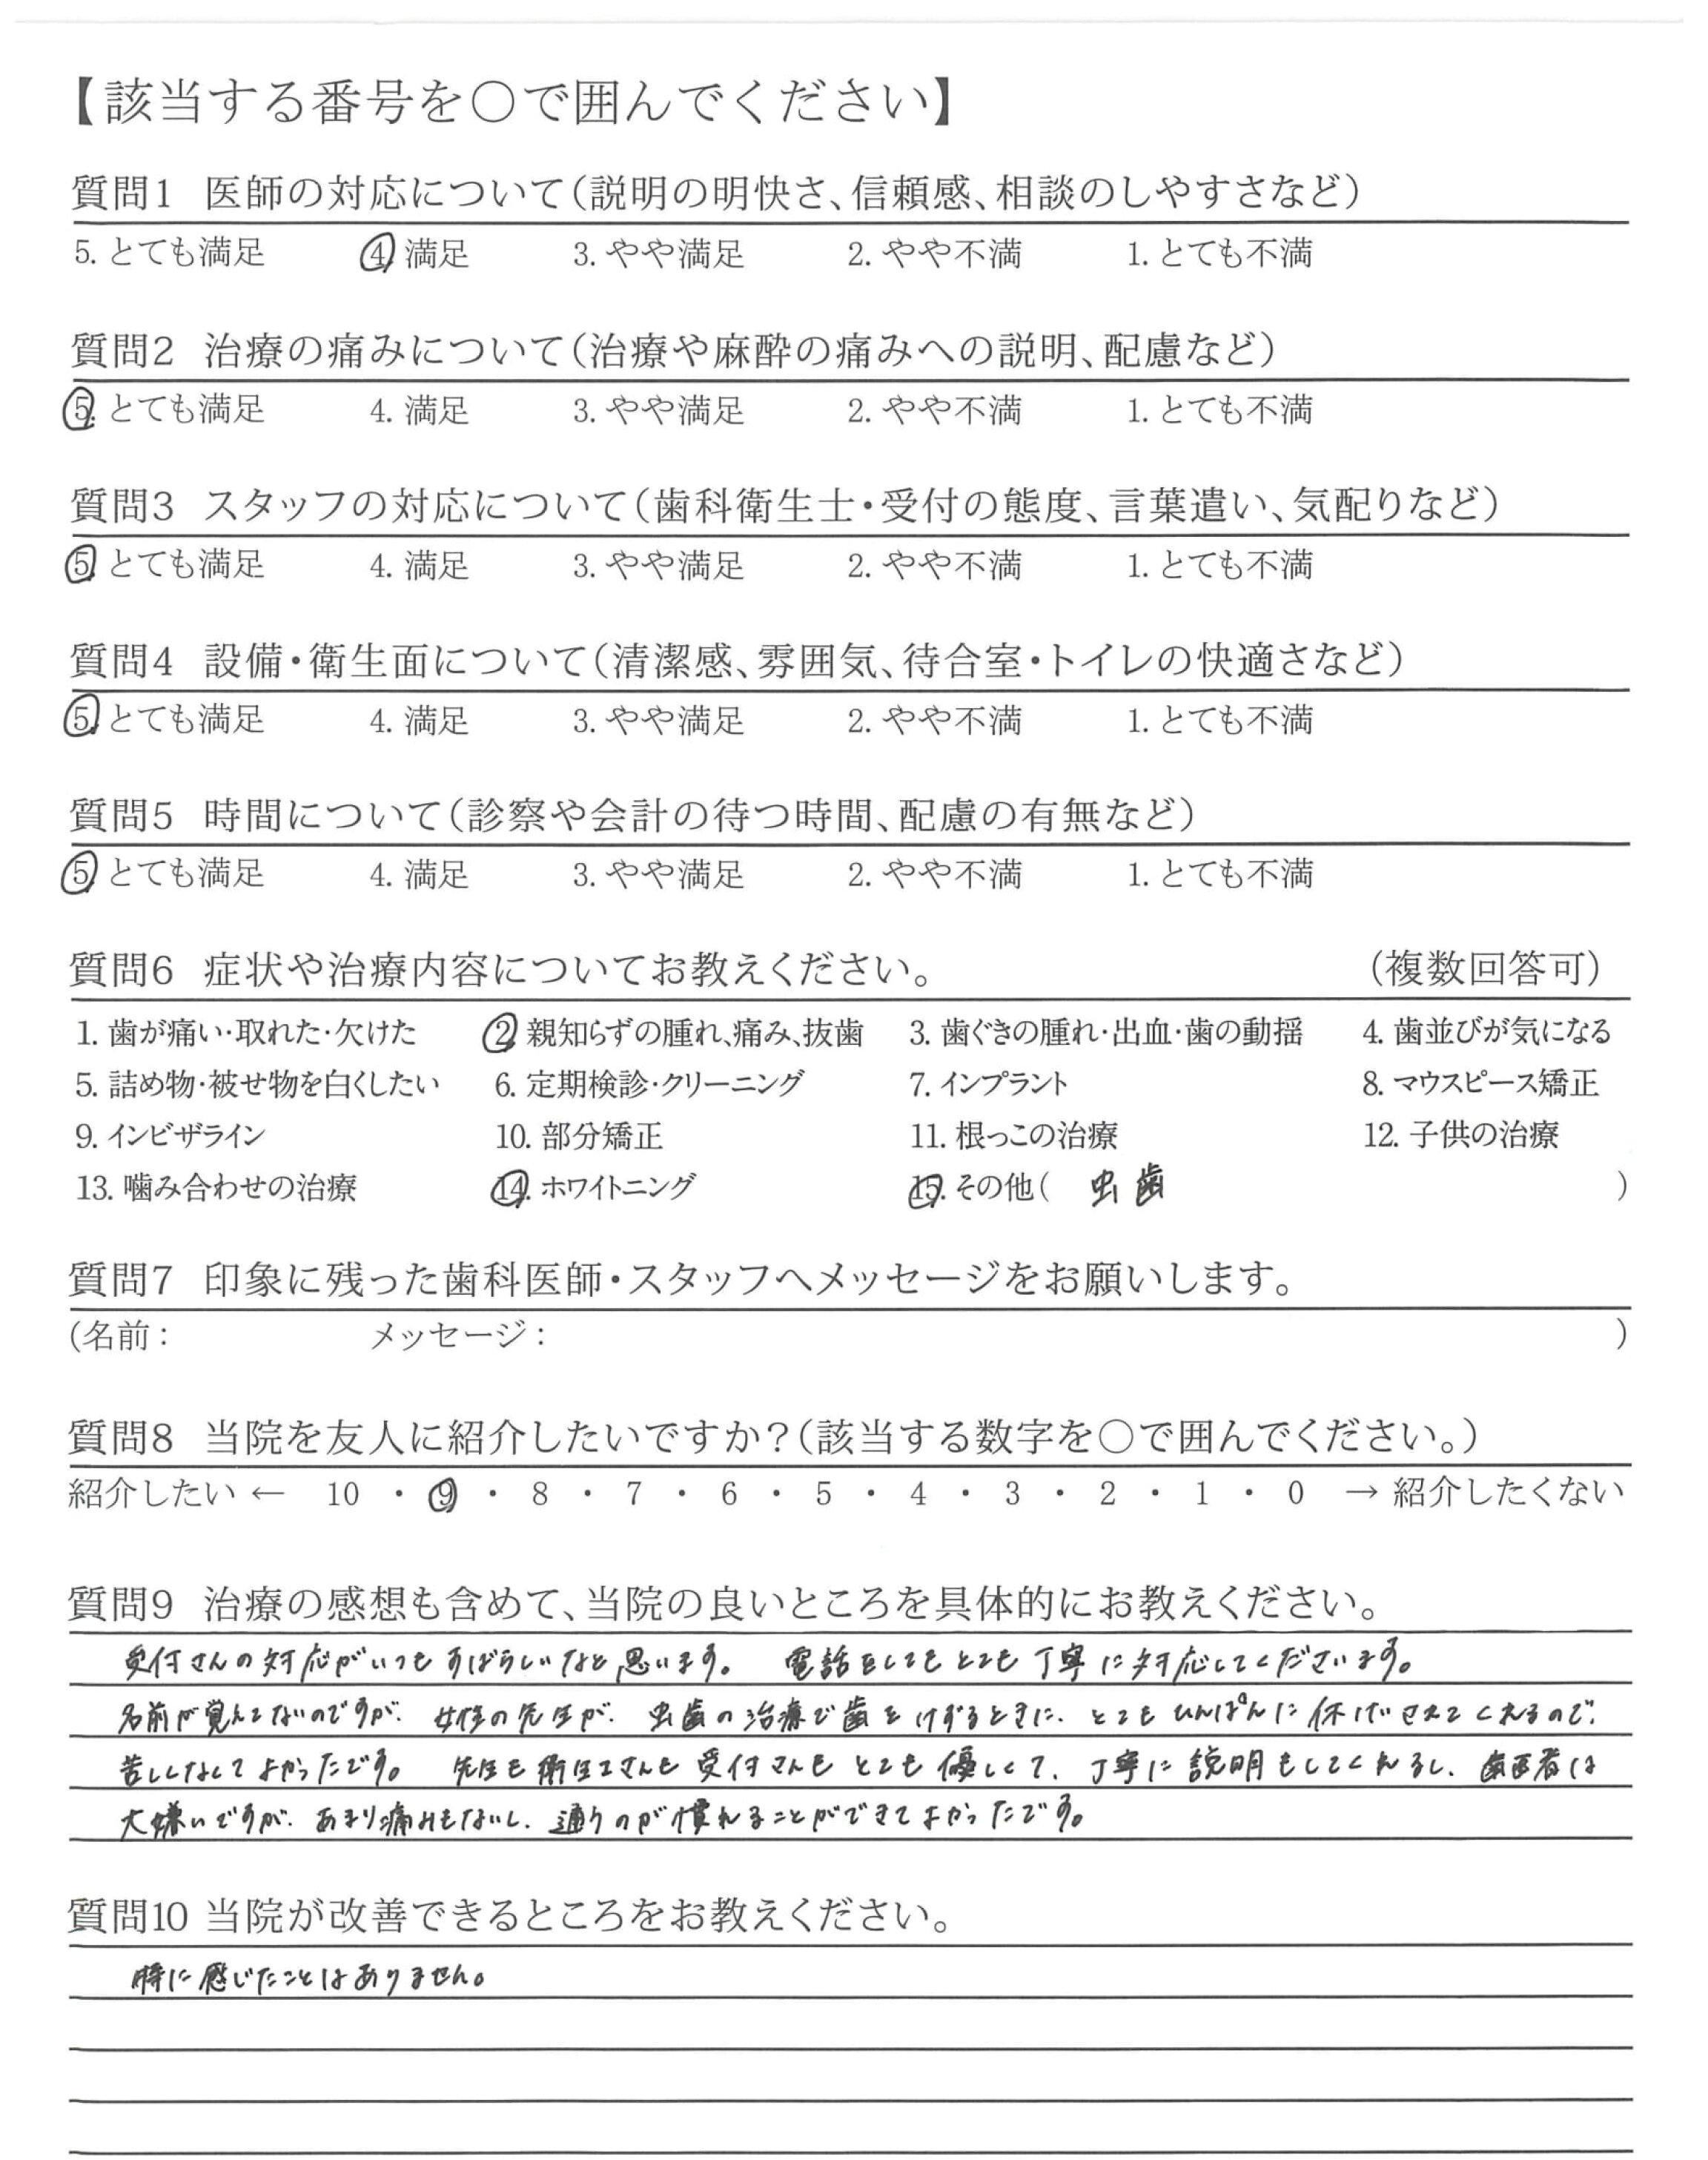 【該当する番号を○で囲んでください】
質問1 医師の対応について(説明の明快さ、信頼感、相談のしやすさなど)
5. とても満足 4. 満足 3. やや満足 2. やや不満 1. とても不満
質問2 治療の痛みについて(治療や麻酔の痛みへの説明、配慮など)
5. とても満足 4. 満足 3. やや満足 2. やや不満 1. とても不満
質問3 スタッフの対応について(歯科衛生士・受付の態度、言葉遣い、気配りなど)
5. とても満足 4. 満足 3. やや満足 2. やや不満 1. とても不満
質問4 設備・衛生面について(清潔感、雰囲気、待合室・トイレの快適さなど)
5. とても満足 4. 満足 3. やや満足 2. やや不満 1. とても不満
質問5 時間について(診察や会計の待つ時間、配慮の有無など)
5. とても満足 4. 満足 3. やや満足 2. やや不満 1. とても不満
質問6 症状や治療内容についてお教えください。 (複数回答可)
1. 歯が痛い・取れた・欠けた 2. 親知らずの腫れ、痛み、抜歯 3. 歯ぐきの腫れ・出血・歯の動揺 4. 歯並びが気になる
5. 詰め物・被せ物を白くしたい 6. 定期検診・クリーニング 7. インプラント 8. マウスピース矯正
9. インビザライン 10. 部分矯正 11. 根っこの治療 12. 子供の治療
13. 噛み合わせの治療 14. ホワイトニング 15. その他( 虫歯 )
質問7 印象に残った歯科医師・スタッフへメッセージをお願いします。
(名前: メッセージ: )
質問8 当院を友人に紹介したいですか?(該当する数字を○で囲んでください。)
紹介したい ← 10 ・ 9 ・ 8 ・ 7 ・ 6 ・ 5 ・ 4 ・ 3 ・ 2 ・ 1 ・ 0 → 紹介したくない
質問9 治療の感想も含めて、当院の良いところを具体的にお教えください。
受付さんの対応がいつもすばらしいなと思います。 電話をしてもとても丁寧に対応してくださいます。
名前が覚えてないのですが、女性の先生が、虫歯の治療で歯をけずるときに、とてもひんぱんに休けいさせてくれるので、
苦しくなくてよかったです。 先生も衛生士さんも受付さんもとても優しくて、丁寧に説明もしてくれるし、歯医者は
大嫌いですが、あまり痛みもないし、通うのが慣れることができてよかったです。
質問10 当院が改善できるところをお教えください。
特に感じたことはありません。